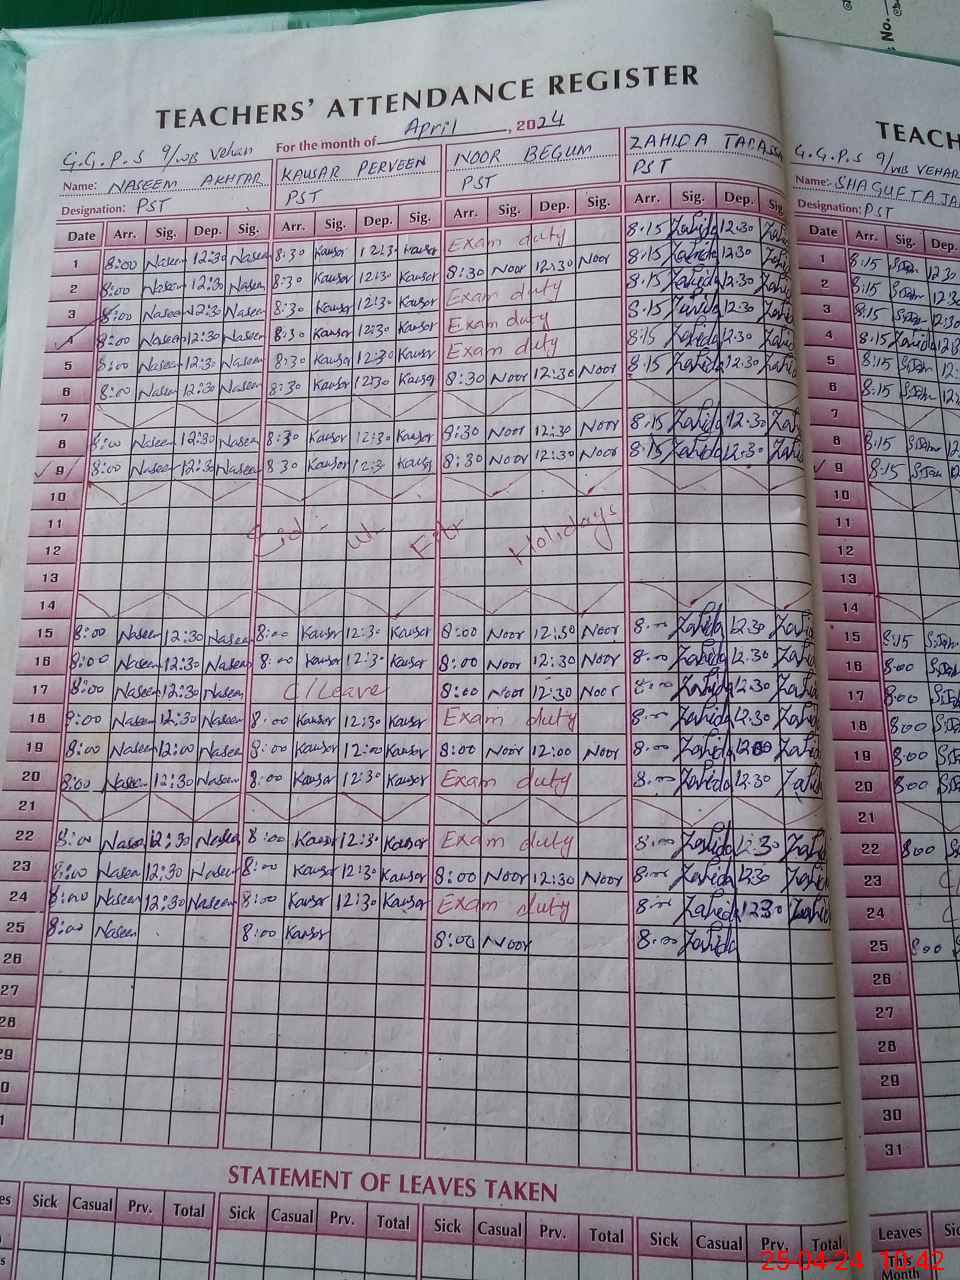 No.
TEACHERS' ATTENDANCE REGISTER
For the month of April, 2024
G.G.P.S 9/WB Vehari
Name: NASEEM AKHTAR KAUSAR PERVEEN NOOR BEGUM ZAHIDA
Designation: PST PST PST PST
Date Arr. Sig. Dep. Sig. Arr. Sig. Dep. Sig. Arr. Sig. Dep. Sig. Arr. Sig. Dep. Sig.
1 8:00 Naseem 12:30 Naseem 8:30 Kausar 12:30 Kausar Exam duty 8:15 Zahida 12:30 Zahida
2 8:00 Naseem 12:30 Naseem 8:30 Kausar 12:30 Kausar 8:30 Noor 12:30 Noor 8:15 Zahida 12:30 Zahida
3 8:00 Naseem 12:30 Naseem 8:30 Kausar 12:30 Kausar Exam duty 8:15 Zahida 12:30 Zahida
4 8:00 Naseem 12:30 Naseem 8:30 Kausar 12:30 Kausar Exam duty 8:15 Zahida 12:30 Zahida
5 8:00 Naseem 12:30 Naseem 8:30 Kausar 12:30 Kausar Exam duty 8:15 Zahida 12:30 Zahida
6 8:00 Naseem 12:30 Naseem 8:30 Kausar 12:30 Kausar 8:30 Noor 12:30 Noor 8:15 Zahida 12:30 Zahida
7
8 8:00 Naseem 12:30 Naseem 8:30 Kausar 12:30 Kausar 8:30 Noor 12:30 Noor 8:15 Zahida 12:30 Zahida
9 8:00 Naseem 12:30 Naseem 8 30 Kausar 12:3 Kausar 8:30 Noor 12:30 Noor 8:15 Zahida 12:30 Zahida
10
11 Eid ul Fitr Holidays
12
13
14
15 8:00 Naseem 12:30 Naseem 8:00 Kausar 12:30 Kausar 8:00 Noor 12:30 Noor 8:00 Zahida 12:30 Zahida
16 8:00 Naseem 12:30 Naseem 8:00 Kausar 12:30 Kausar 8:00 Noor 12:30 Noor 8:00 Zahida 12:30 Zahida
17 8:00 Naseem 12:30 Naseem C/Leave 8:00 Noor 12:30 Noor 8:00 Zahida 12:30 Zahida
18 8:00 Naseem 12:30 Naseem 8:00 Kausar 12:30 Kausar Exam duty 8:00 Zahida 12:30 Zahida
19 8:00 Naseem 12:00 Naseem 8:00 Kausar 12:00 Kausar 8:00 Noor 12:00 Noor 8:00 Zahida 12:00 Zahida
20 8:00 Naseem 12:30 Naseem 8:00 Kausar 12:30 Kausar Exam duty 8:00 Zahida 12:30 Zahida
21
22 8:00 Naseem 12:30 Naseem 8:00 Kausar 12:30 Kausar Exam duty 8:00 Zahida 12:30 Zahida
23 8:00 Naseem 12:30 Naseem 8:00 Kausar 12:30 Kausar 8:00 Noor 12:30 Noor 8:00 Zahida 12:30 Zahida
24 8:00 Naseem 12:30 Naseem 8:00 Kausar 12:30 Kausar Exam duty 8:00 Zahida 12:30 Zahida
25 8:00 Naseem 8:00 Kausar 8:00 Noor 8:00 Zahida
26
27
28
29
STATEMENT OF LEAVES TAKEN
Sick Casual Prv. Total Sick Casual Prv. Total Sick Casual Prv. Total Sick Casual Prv. Total
G.G.P.S 9/WB VEHAR
Name: SHAGUFTA
Designation: PST
Date Arr. Sig. Dep.
1 8:15 12 30
2 8:15
3 8:15
4 8:15
5 8:15
6 8:15
7
8 8:15
9 8:15
10
11
12
13
14
15 8:15
16 8:00
17 8:00
18 8:00
19 8:00
20 8:00
21
22 8:00
23
24
25 8:00
26
27
28
29
30
31
Leaves
This Month
25-04-24 10:42